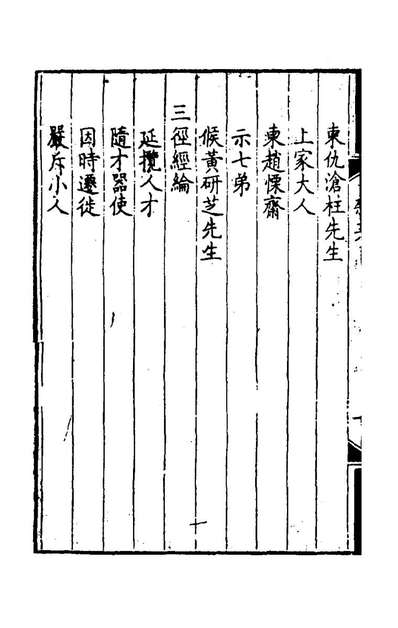 東仇滄柱先生
上家大人
東趙慄齋
示七弟
候黃研芝先生
三徑經綸
延攬人才
隨才器使
因時遷徙
嚴斥小人